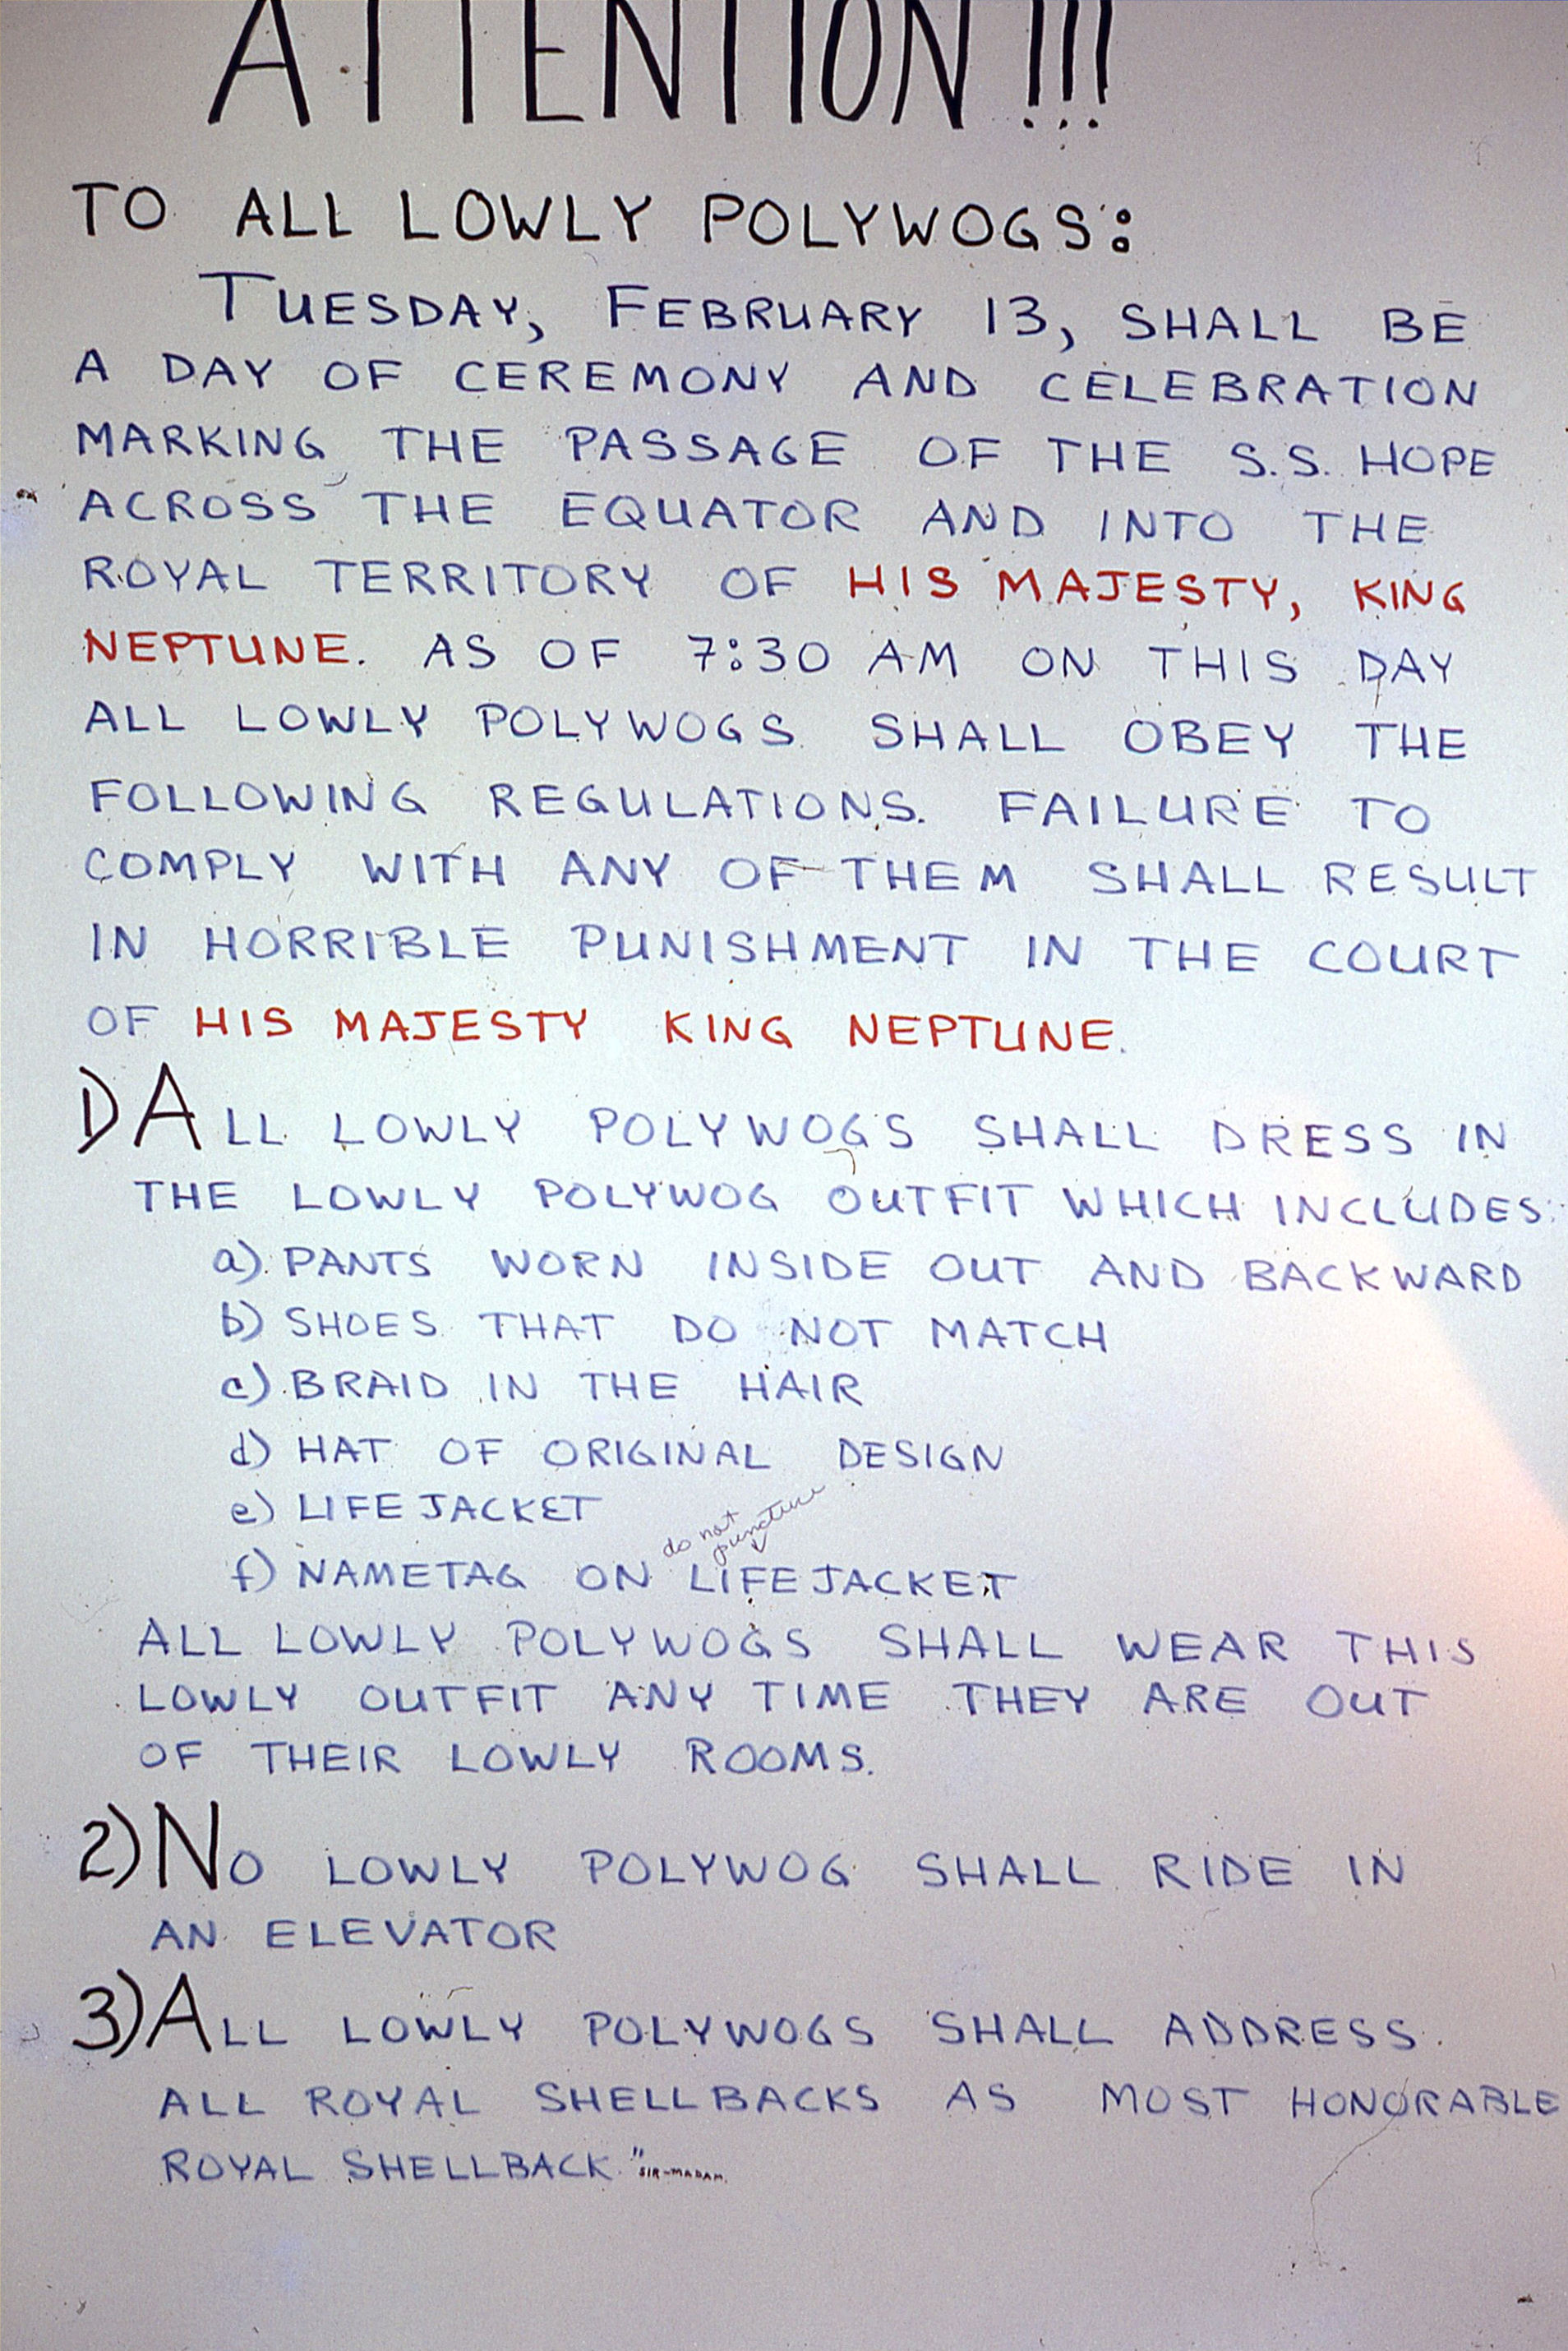 ATTENTION!!!
TO ALL LOWLY POLYWOGS:
TUESDAY, FEBRUARY 13, SHALL BE
A DAY OF CEREMONY AND CELEBRATION
MARKING THE PASSAGE OF THE S.S. HOPE
ACROSS THE EQUATOR AND INTO THE
ROYAL TERRITORY OF HIS MAJESTY, KING
NEPTUNE. AS OF 7:30 AM ON THIS DAY
ALL LOWLY POLYWOGS SHALL OBEY THE
FOLLOWING REGULATIONS. FAILURE TO
COMPLY WITH ANY OF THEM SHALL RESULT
IN HORRIBLE PUNISHMENT IN THE COURT
OF HIS MAJESTY KING NEPTUNE.
1) ALL LOWLY POLYWOGS SHALL DRESS IN
THE LOWLY POLYWOG OUTFIT WHICH INCLUDES:
a) PANTS WORN INSIDE OUT AND BACKWARD
b) SHOES THAT DO NOT MATCH
c) BRAID IN THE HAIR
d) HAT OF ORIGINAL DESIGN
e) LIFE JACKET
do not puncture
f) NAMETAG ON LIFE JACKET
ALL LOWLY POLYWOGS SHALL WEAR THIS
LOWLY OUTFIT ANY TIME THEY ARE OUT
OF THEIR LOWLY ROOMS.
2) NO LOWLY POLYWOG SHALL RIDE IN
AN ELEVATOR
3) ALL LOWLY POLYWOGS SHALL ADDRESS
ALL ROYAL SHELLBACKS AS MOST HONORABLE
ROYAL SHELLBACK." SIR-MADAM.